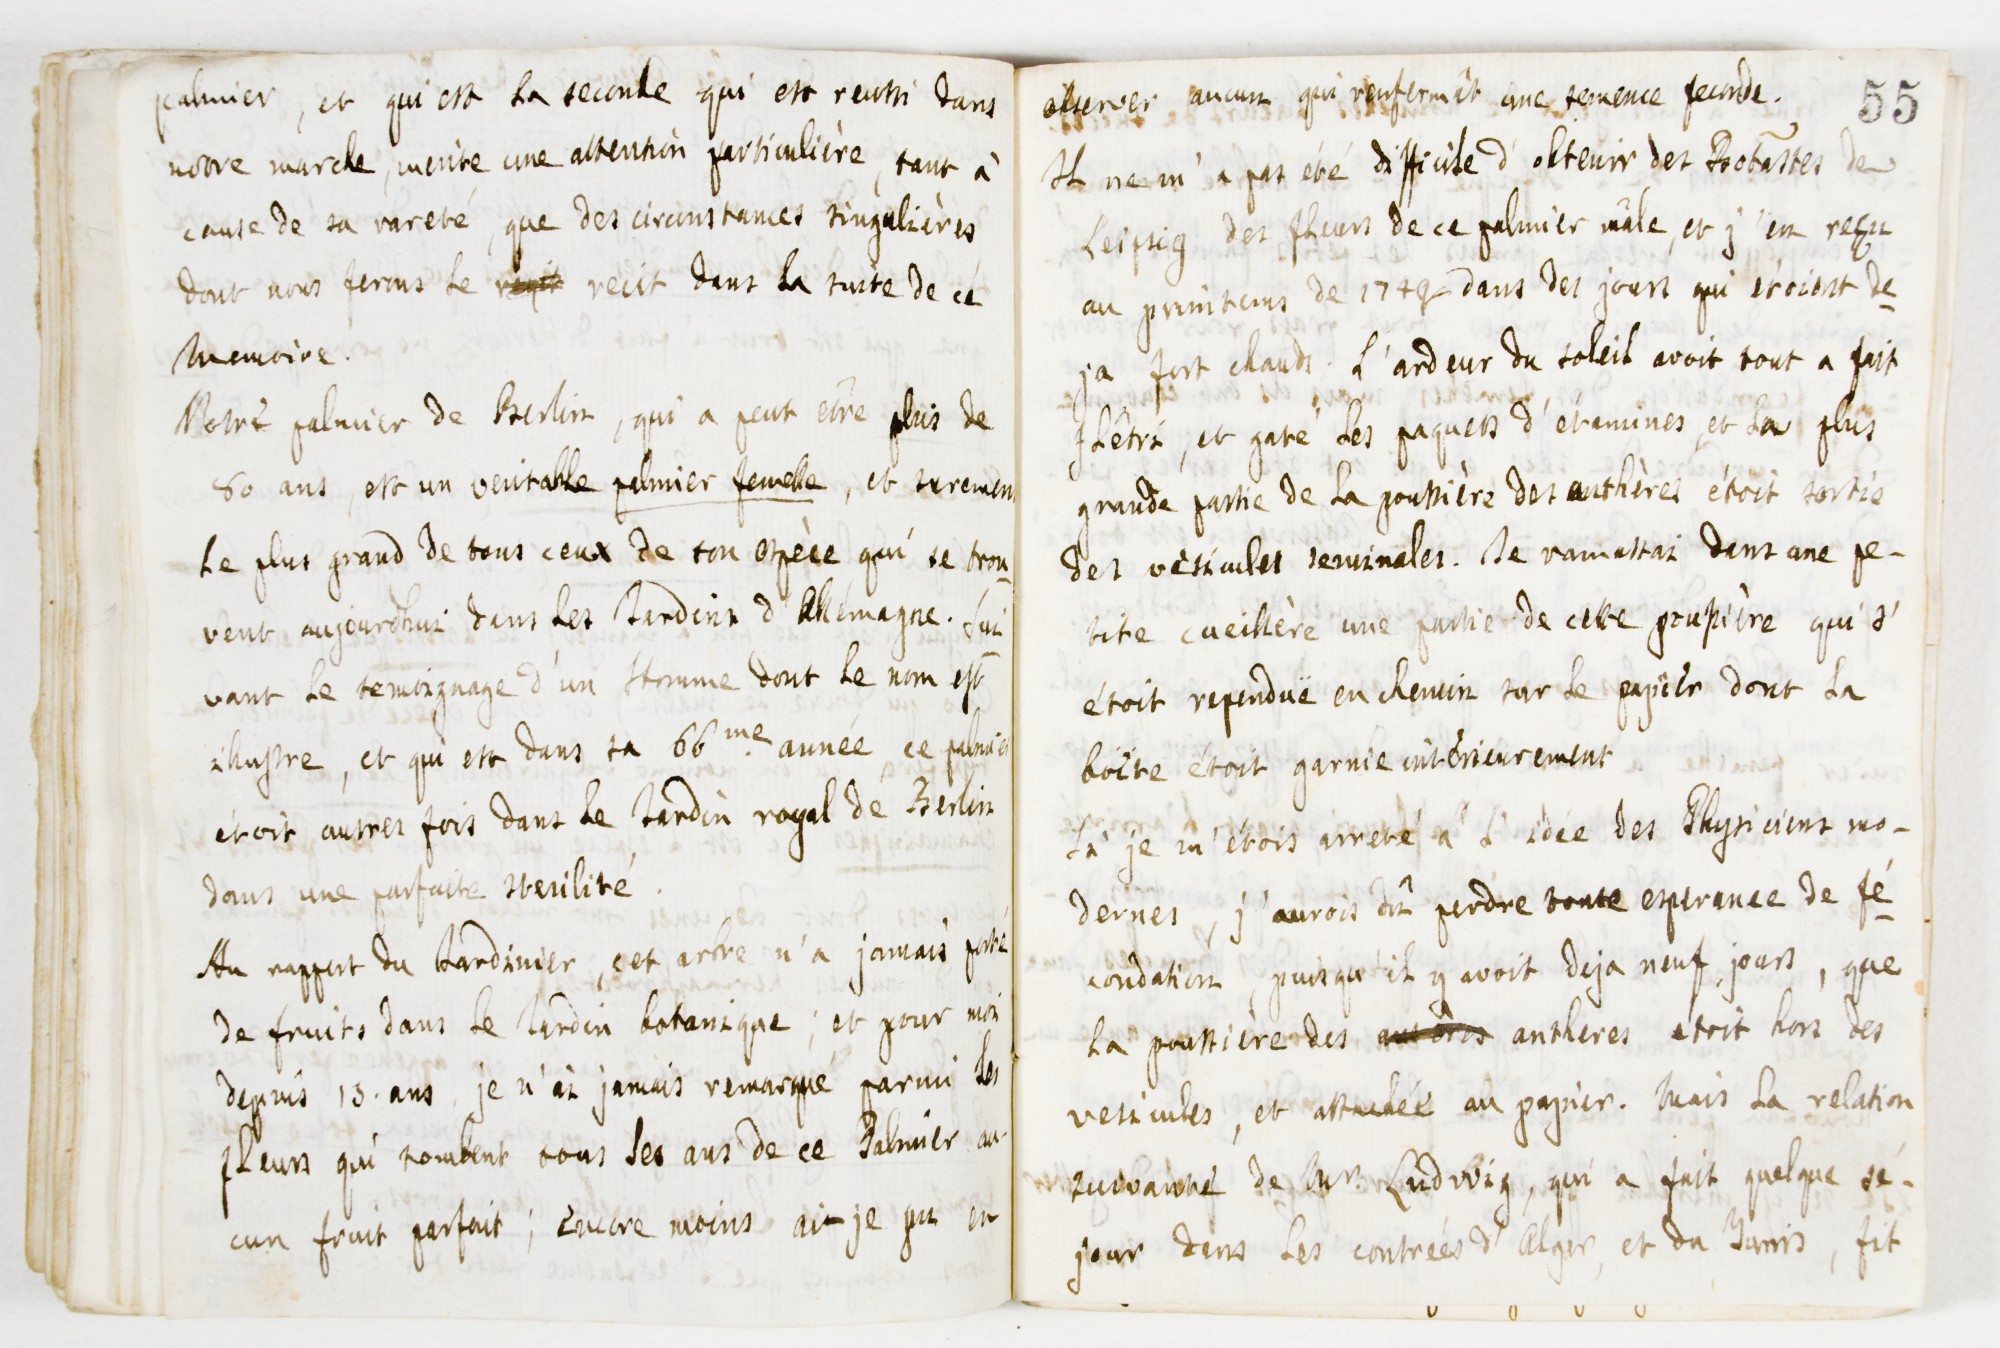 palmier, et qui est la seconde qui est reussi dans
notre marche, merite une attention particulière, tant à
cause de sa rareté, que des circonstances singulières
dont nous ferons le recit dans la suite de cé
Memoire.
Notre palmier de Berlin, qui a peut être plus de
80 ans, est un veritable palmier femelle, et surement
le plus grand de tous ceux de son espèce qui se trou-
vent aujourdhui dans les Jardins d'Allemagne. Sui
vant le temoignage d'un Homme dont le nom est
illustre, et qui est dans sa 66me. année ce palmier
étoit autres fois dans le Jardin royal de Berlin
dans une parfaite sterilité.
Au rapport du Jardinier, cet arbre n'a jamais porté
de fruits dans le Jardin botanique; et pour moi
depuis 13. ans je n'ai jamais remarqué parmi les
fleurs qui tombent tous les ans de ce Palmier au-
cun fruit parfait; encore moins ai-je pu en
55
observer aucun qui renfermât une semence feconde.
Il ne m'a pas été difficile d'obtenir des Botastes de
Leipsig des fleurs de ce palmier mâle, et j'en reçu
au printems de 1749 dans des jours qui étoient de-
ja fort chauds. L'ardeur du soleil avoit tout a fait
flêtri, et gaté les paquets d'étamines, et la plus
grande partie de la poussière des anthères étoit sortie
des vésicules seminales. Je ramassai dans une pe-
tite cueillère une partie de cette poussière qui s'
étoit rependuë en chemin sur le papier dont la
boîte étoit garnie intérieurement
Si je m'étois arreté à l'idée des Physiciens mo-
dernes, j'aurois dû perdre toute esperance de fé-
condation, puisqu'il y avoit deja neuf jours, que
la poussière des anthères etoit hors des
vesicules, et attachée au papier. Mais la relation
suivante de Mr. Ludwig, qui a fait quelque sé-
jour dans les contrées d'Alger, et du Tunis, fit